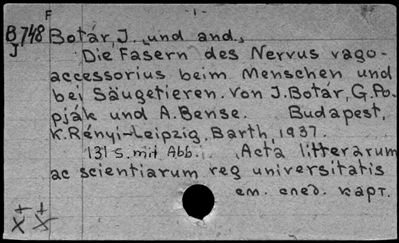 - 1 -
F
B748 Botár, J. „und and.„
J
Die Fasern des Nervus vago-
accessorius beim Menschen und
bei Säugetieren. Von J. Botár, G. Po-
pják und A. Bense. Budapest,
K. Rényi-Leipzig, Barth, 1937.
131 s. mit Abb. „Acta litterarum
ac scientiarum reg universitatis
см. след. карт.